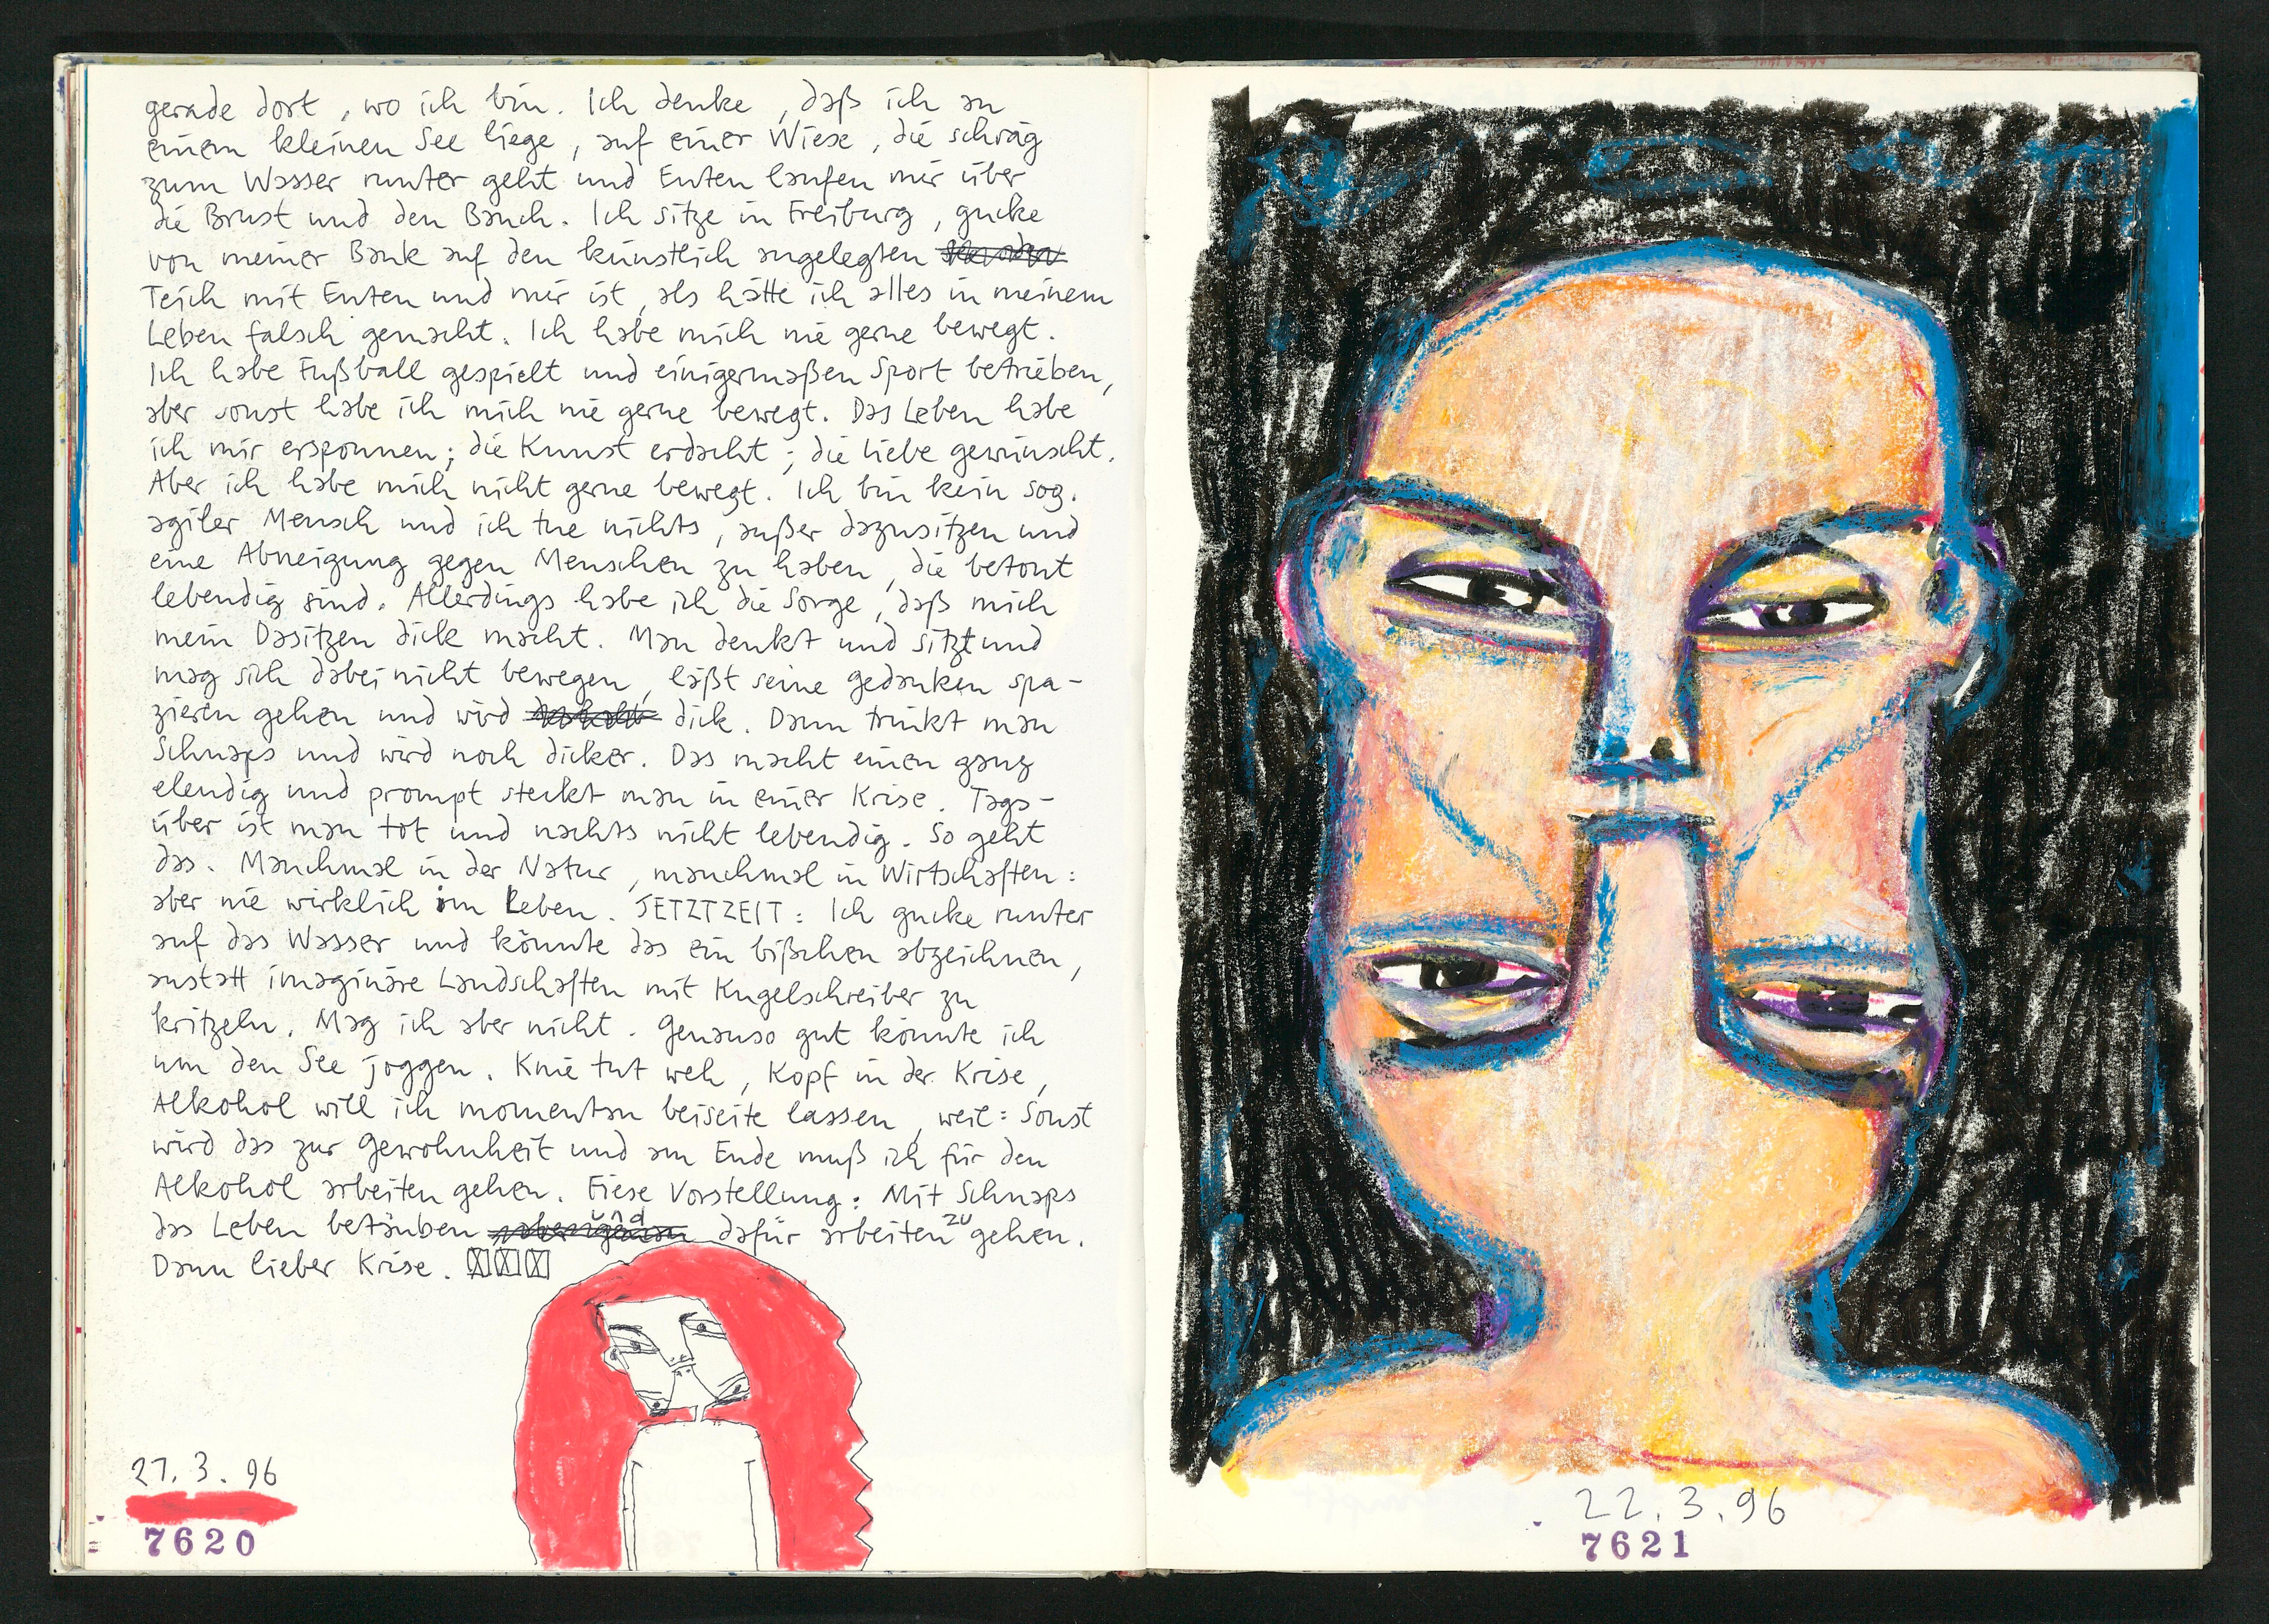 gerade dort, wo ich bin. Ich denke, daß ich an
einem kleinen See liege, auf einer Wiese, die schräg
zum Wasser runter geht und Enten laufen mir über
die Brust und den Bauch. Ich sitze in Freiburg, gucke
von meiner Bank auf den künstlich angelegten
Teich mit Enten und mir ist, als hätte ich alles in meinem
Leben falsch gemacht. Ich habe mich nie gerne bewegt.
Ich habe Fußball gespielt und einigermaßen Sport betrieben,
aber sonst habe ich mich nie gerne bewegt. Das Leben habe
ich mir ersponnen; die Kunst erdacht; die Liebe gewünscht.
Aber ich habe mich nicht gerne bewegt. Ich bin kein sog.
agiler Mensch und ich tue nichts, außer dazusitzen und
eine Abneigung gegen Menschen zu haben, die betont
lebendig sind. Allerdings habe ich die Sorge, daß mich
mein Dasitzen dick macht. Man denkt und sitzt und
mag sich dabei nicht bewegen, läßt seine Gedanken spa-
zieren gehen und wird dick. Dann trinkt man
Schnaps und wird noch dicker. Das macht einen ganz
elendig und prompt steckt man in einer Krise. Tags-
über ist man tot und nachts nicht lebendig. So geht
das. Manchmal in der Natur, manchmal in Wirtschaften:
aber nie wirklich im Leben. JETZTZEIT: Ich gucke runter
auf das Wasser und könnte das ein bißchen abzeichnen,
anstatt imaginäre Landschaften mit Kugelschreiber zu
kritzeln. Mag ich aber nicht. Genauso gut könnte ich
um den See joggen. Knie tut weh, Kopf in der Krise,
Alkohol will ich momentan beiseite lassen, weil: Sonst
wird das zur Gewohnheit und am Ende muß ich für den
Alkohol arbeiten gehen. Fiese Vorstellung: Mit Schnaps
das Leben betäuben und dafür arbeiten zu gehen.
Dann lieber Krise.
21.3.96
7620
22.3.96
7621